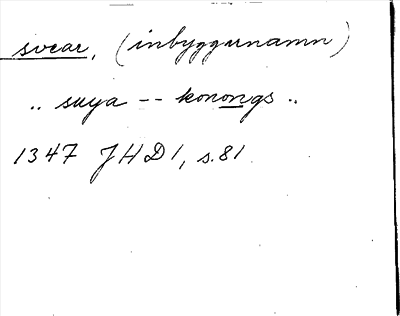 svear, (inbyggarnamn)
.. suya -- konongs ..
1347 JHD 1, s. 81